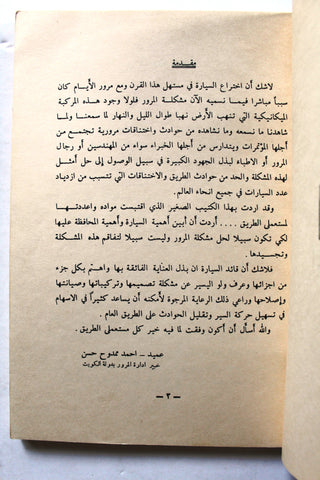 مقدمة
لاشك أن اختراع السيارة في مستهل هذا القرن ومع مرور الأيام كان
سببا مباشرا فيما نسميه الآن مشكلة المرور فلولا وجود هذه المركبة
الميكانيكية التي تنهب الأرض نهبا طوال الليل والنهار لما سمعنا ولما
شاهدنا ما نسمعه وما نشاهده من حوادث واختناقات مرورية تجتمع من
أجلها المؤتمرات ويتدارس من أجلها الخبراء سواء من المهندسين أو رجال
المرور أو الاطباء لبذل الجهود الكبيرة في سبيل الوصول إلى حل أمثل
لهذه المشكلة والحد من حوادث الطريق والاختناقات التي تتسبب من ازدياد
عدد السيارات في جميع انحاء العالم.
وقد اردت بهذا الكتيب الصغير الذي اقتبست مواده واعددتها
لمستعملي الطريق .... أردت أن أبين أهمية السيارة وأهمية المحافظة عليها
لكي تكون سبيلا لحل مشكلة المرور وليست سبيلا لتفاقم هذه المشكلة
وتجسيدها.
فلاشك أن قائد السيارة ان بذل العناية الفائقة بها واهتم بكل جزء
من اجزائها وعرف ولو اليسير عن مشكلة تصميمها وتركيباتها وصيانتها
وإصلاحها وراعي ذلك الرعاية المرجوة لأمكنه أن يساعد كثيرا في الاسهام
في تسهيل حركة السير وتقليل الحوادث على الطريق العام.
والله أسأل أن أكون وفقت لما فيه خير كل مستعملي الطريق.
عميد - احمد ممدوح حسن
خبير ادارة المرور بدولة الكويت
— ٣ —